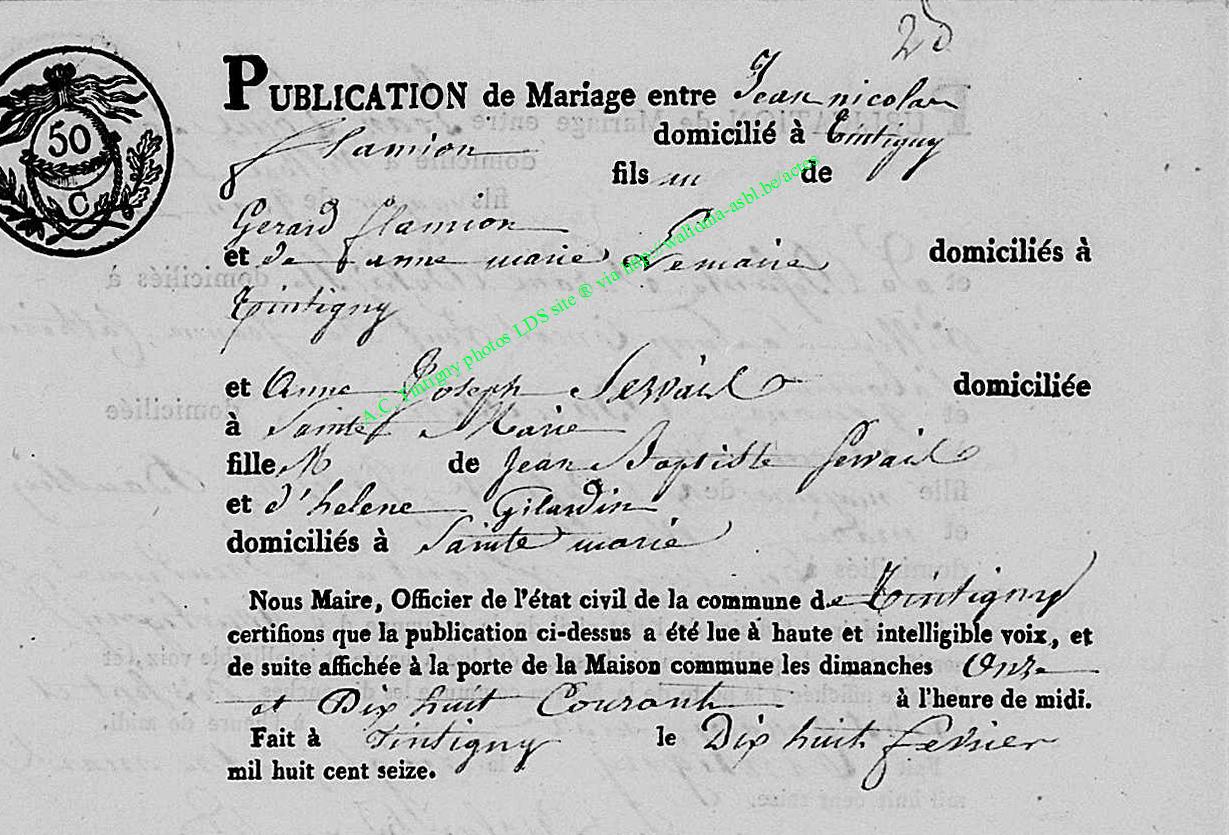 25
50
C
PUBLICATION de Mariage entre Jean nicolas
flamion domicilié à tintigny
fils de
Gerard flamion
et de Jeanne marie Lemaire domiciliés à
tintigny
et Anne Joseph Servais domiciliée
à Sainte Marie
fille M de Jean Baptiste Servais
et d'helene Gilardin
domiciliés à Sainte marie
Nous Maire, Officier de l'état civil de la commune de tintigny
certifions que la publication ci-dessus a été lue à haute et intelligible voix, et
de suite affichée à la porte de la Maison commune les dimanches Onze
et Dix huit Courant à l'heure de midi.
Fait à tintigny le Dix huit fevrier
mil huit cent seize.
A.C. Tintigny photos LDS site ® via http://wallonia-asbl.be/actes